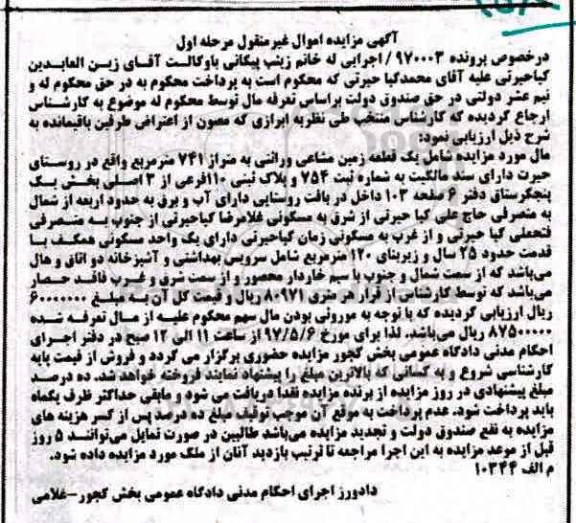 آگهی مزایده اموال غیرمنقول مرحله اول
درخصوص پرونده ۹۷۰۰۰۳/اجرایی له خانم زینب پیگانی باوکالت آقای زین العابدین
کیاحیرتی علیه آقای محمدکیا حیرتی که محکوم است به پرداخت محکوم به در حق محکوم له و
نیم عشر دولتی در حق صندوق دولت براساس تعرفه مال توسط محکوم له موضوع به کارشناس
ارجاع گردیده که کارشناس منتخب طی نظریه ابرازی که مصون از اعتراض طرفین باقیمانده به
شرح ذیل ارزیابی نمود:
مال مورد مزایده شامل یک قطعه زمین مشاعی وراثتی به متراژ ۷۴۱ مترمربع واقع در روستای
حیرت دارای سند مالکیت به شماره ثبت ۷۵۴ و پلاک ثبتی ۱۱۰فرعی از ۳ اصلی بخش یک
پنجکرستاق دفتر ۶ صفحه ۱۰۳ داخل در بافت روستایی دارای آب و برق به حدود اربعه از شمال
به متصرفی حاج علی کیا حیرتی از شرق به مسکونی غلامرضا کیاحیرتی از جنوب به متصرفی
فتحعلی کیا حیرتی و از غرب به مسکونی زمان کیاحیرتی دارای یک واحد مسکونی همکف با
قدمت حدود ۲۵ سال و زیربنای ۱۲۰ مترمربع شامل سرویس بهداشتی و آشپزخانه دو اتاق و هال
می‌باشد که از سمت شمال و جنوب با سیم خاردار محصور و از سمت شرق و غرب فاقد حصار
می‌باشد که توسط کارشناس از قرار هر متری ۸۰۹۷۱ ریال و قیمت کل آن به مبلغ ۶۰۰۰۰۰۰۰
ریال ارزیابی گردیده که با توجه به موروثی بودن مال سهم محکوم علیه از مال تعرفه شده
۸۷۵۰۰۰۰۰ ریال می‌باشد. لذا برای مورخ ۹۷/۵/۶ از ساعت ۱۱ الی ۱۲ صبح در دفتر اجرای
احکام مدنی دادگاه عمومی بخش کجور مزایده حضوری برگزار می گردد و فروش از قیمت پایه
کارشناسی شروع و به کسانی که بالاترین مبلغ را پیشنهاد نمایند فروخته خواهد شد. ده درصد
مبلغ پیشنهادی در روز مزایده از برنده مزایده نقدا دریافت می شود و مابقی حداکثر ظرف یکماه
باید پرداخت شود. عدم پرداخت به موقع آن موجب توقیف مبلغ ده درصد پس از کسر هزینه های
مزایده به نفع صندوق دولت و تجدید مزایده می‌باشد طالبین در صورت تمایل می‌توانند ۵ روز
قبل از موعد مزایده به این اجرا مراجعه تا ترتیب بازدید آنان از ملک مورد مزایده داده شود.
م الف ۱۰۳۴۴
دادورز اجرای احکام مدنی دادگاه عمومی بخش کجور-غلامی